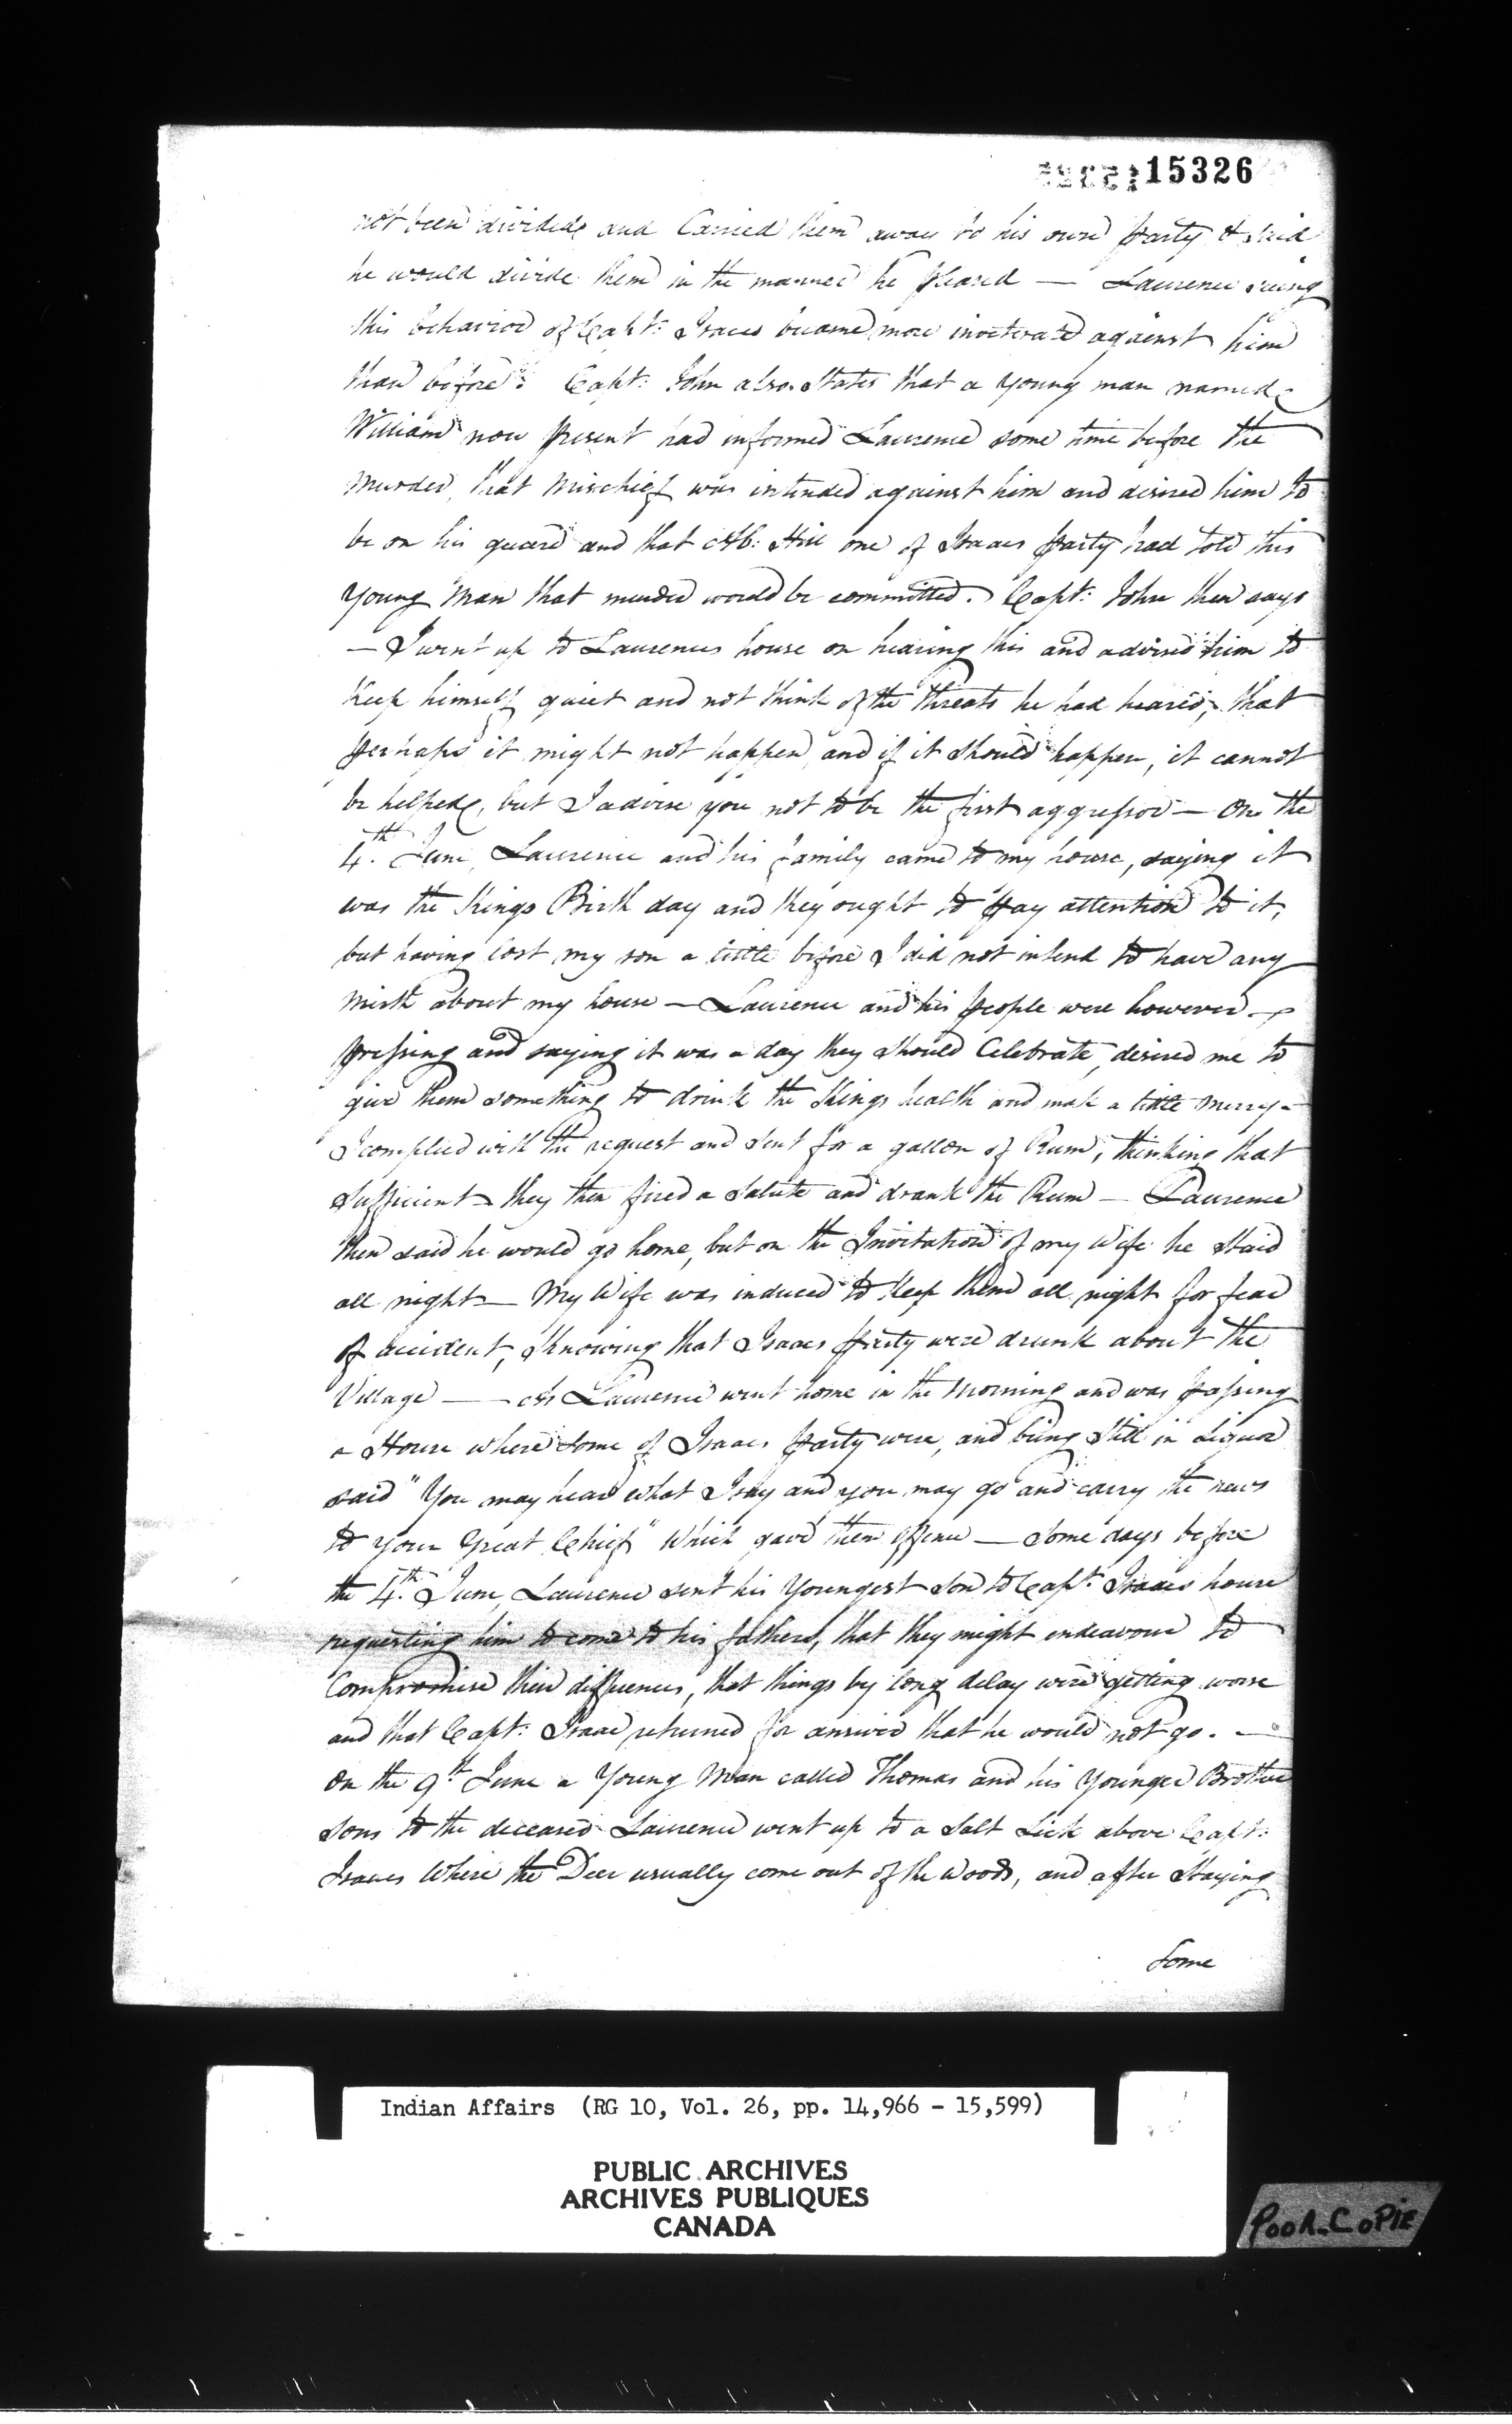 15326
not been divided, and Carried them away to his own party & said
he would divide them in the manner he pleased — Laurence seeing
this behavior of Capt: Isaacs became more inveterate against him
than before: Capt: John also States that a young man named
William now present had informed Laurence some time before the
murder, that Mischief was intended against him and desired him to
be on his guard and that Ab: Hill one of Isaacs party had told this
young Man that murder would be committed. Capt: John then says
— I went up to Laurences house on hearing this and advised him to
Keep himself quiet and not think of the threats he had heared, that
perhaps it might not happen, and if it should happen, it cannot
be helped, but I advise you not to be the first aggressor — On the
4th. June, Laurence and his family came to my house, saying it
was the Kings Birth day and they ought to pay attention to it,
but having lost my son a little before I did not intend to have any
Mirth about my house — Laurence and his people were however
pressing and saying it was a day they should Celebrate, desired me to
give them something to drink the Kings health and make a little merry —
I complied with the request and sent for a gallon of Rum, thinking that
Sufficient — they then fired a Salute and drank the Rum — Laurence
then said he would go home, but on the Invitation of my Wife he Staid
all night — My Wife was induced to Keep them all night for fear
of accident, Knowing that Isaacs party were drunk about the
Village — As Laurence went home in the Morning and was passing
a House where some of Isaacs party were, and being Still in Liquor
said "You may hear what I say and you may go and carry the news
to your Great Chief" Which gave them offence — Some days before
the 4th. June, Laurence sent his Youngest Son to Capt: Isaacs house
requesting him to come to his fathers, that they might endeavour to
Compromise their differences, that things by long delay were getting worse
and that Capt: Isaac returned for answer that he would not go. —
On the 9th June a Young Man called Thomas and his Younger Brother
Sons to the deceased Laurence went up to a Salt Lick above Capt:
Isaacs Where the Deer usually come out of the Woods, and after Staying
Some
Indian Affairs (RG 10, Vol. 26, pp. 14,966 - 15,599)
PUBLIC ARCHIVES
ARCHIVES PUBLIQUES
CANADA
POOR COPIE